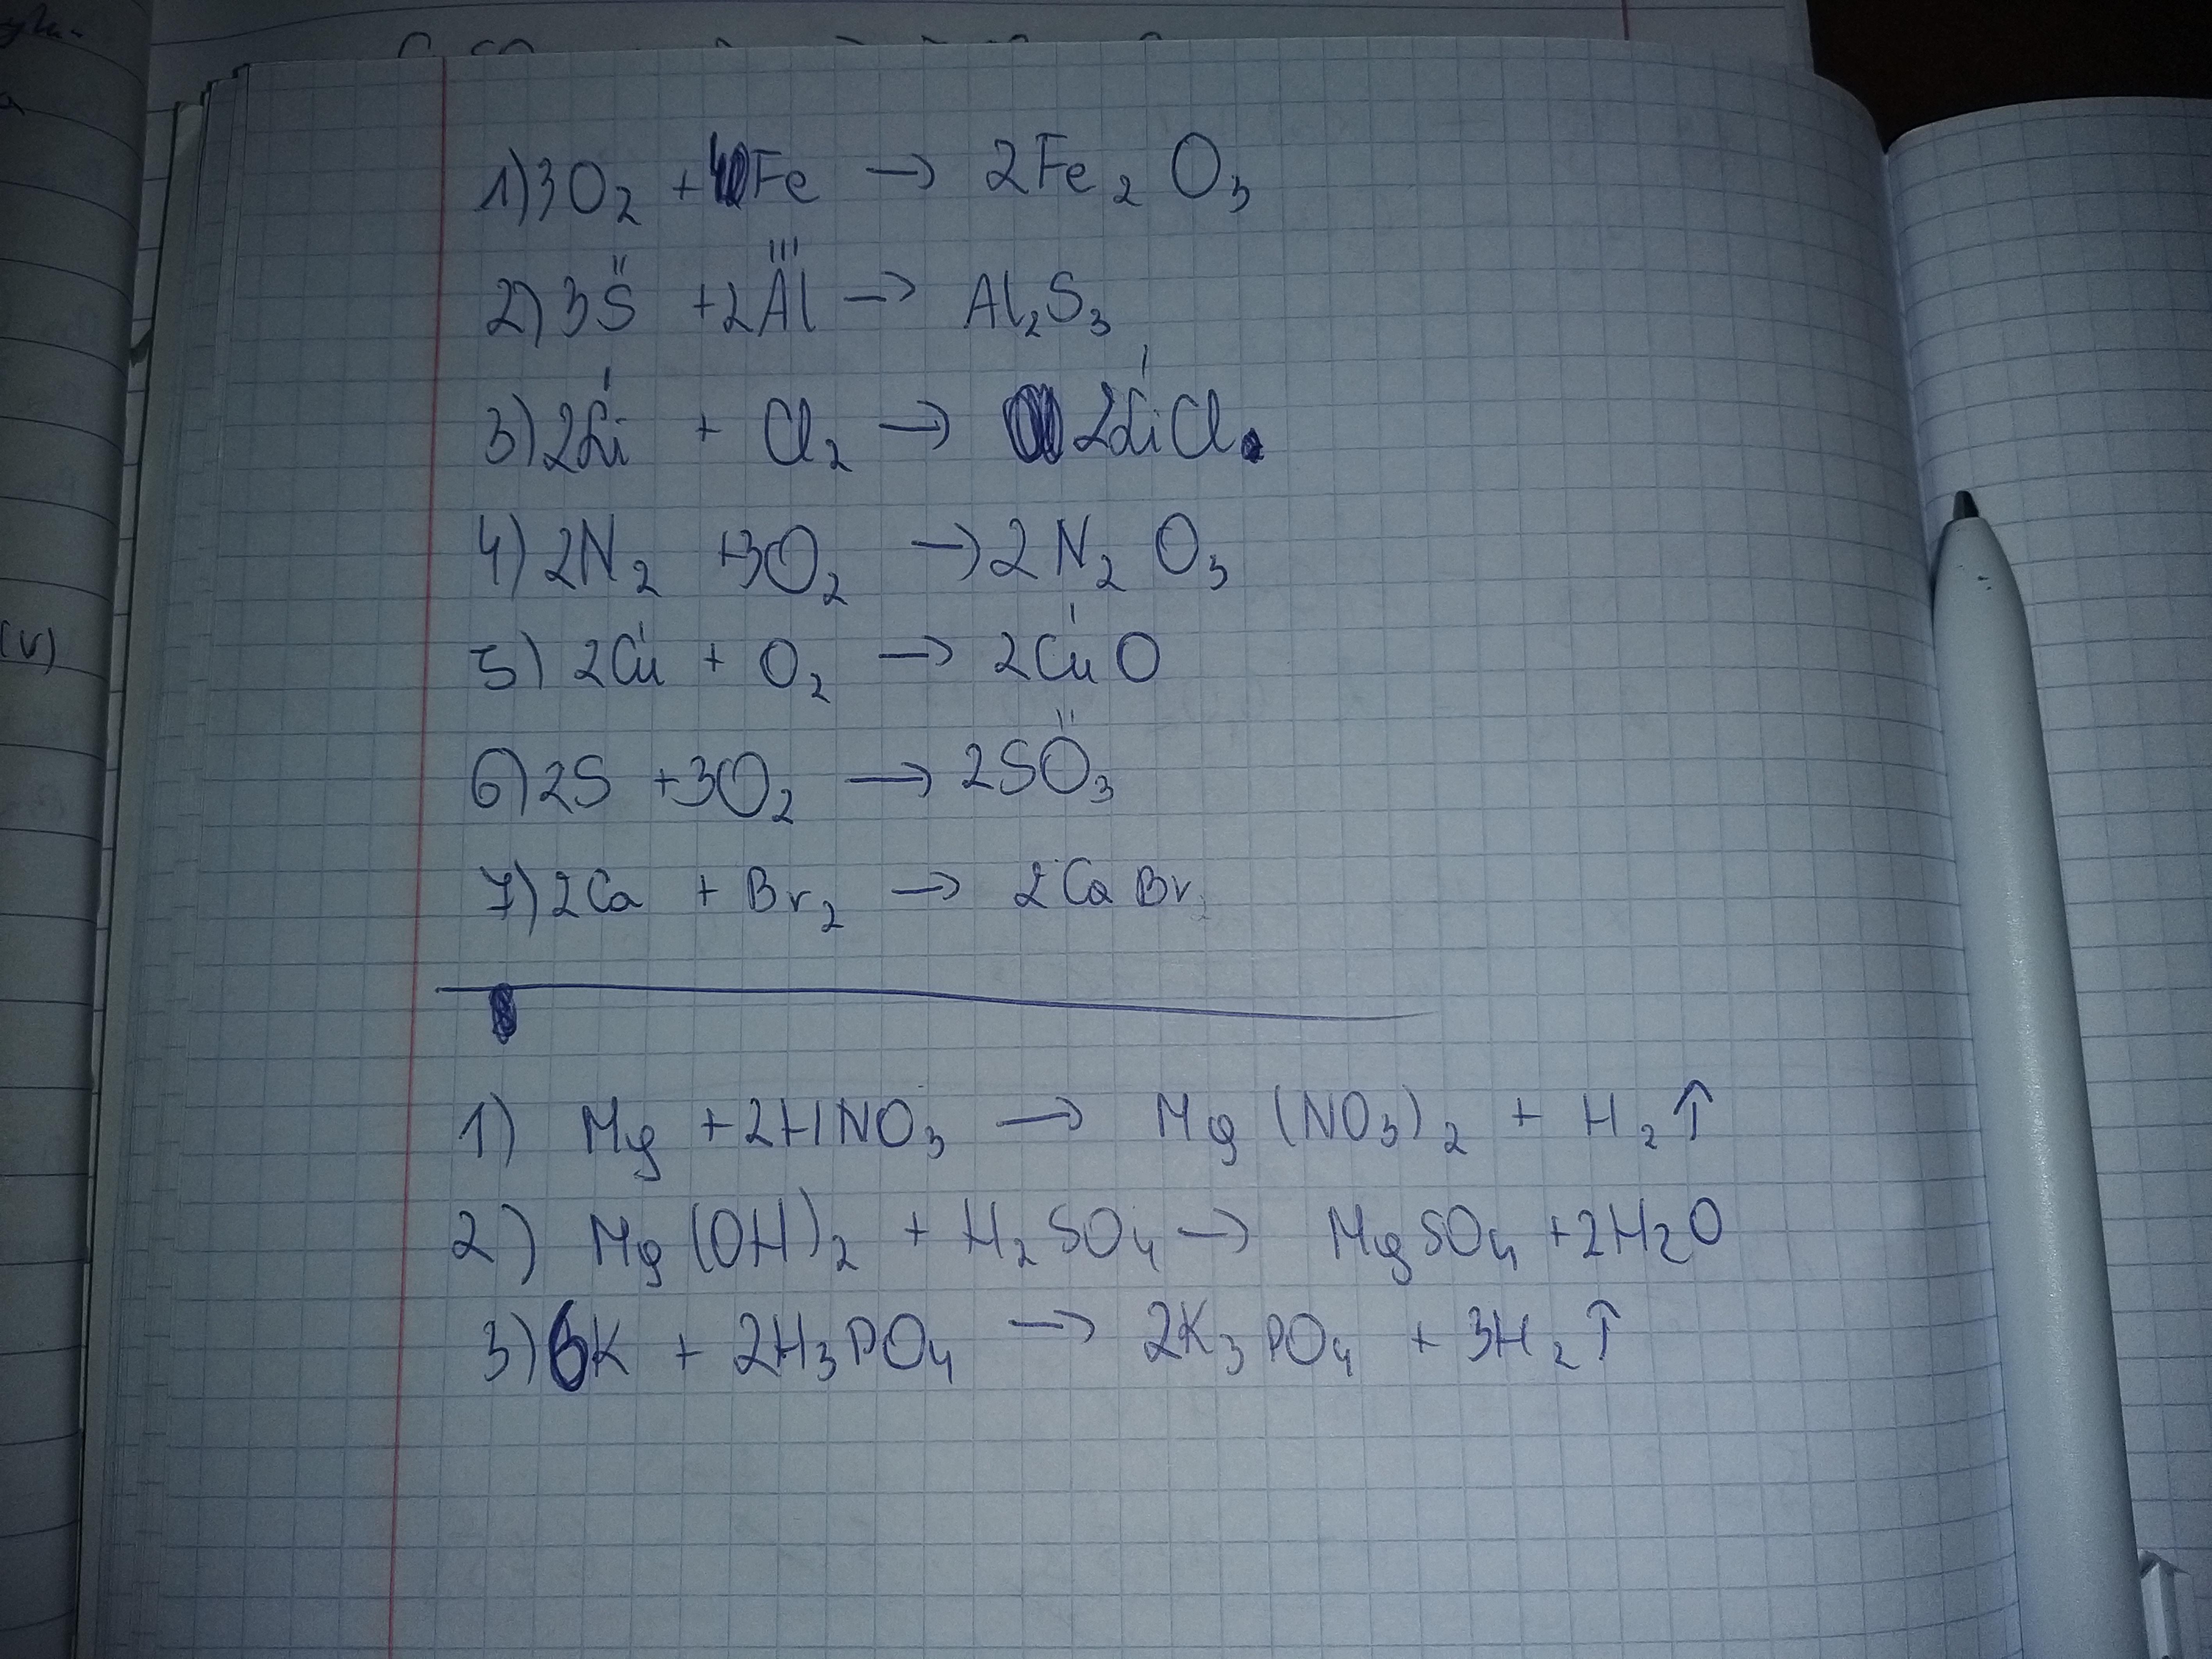 (V)
1) 3O₂ + 4Fe → 2Fe₂O₃
2) 3S + 2Al → Al₂S₃
3) 2Li + Cl₂ → 2LiCl
4) 2N₂ +3O₂ → 2N₂O₃
5) 2Cu + O₂ → 2CuO
6) 2S +3O₂ → 2SO₃
7) 2Ca + Br₂ → 2CaBr
1) Mg + 2HNO₃ → Mg(NO₃)₂ + H₂↑
2) Mg(OH)₂ + H₂SO₄ → MgSO₄ + 2H₂O
3) 6K + 2H₃PO₄ → 2K₃PO₄ + 3H₂↑